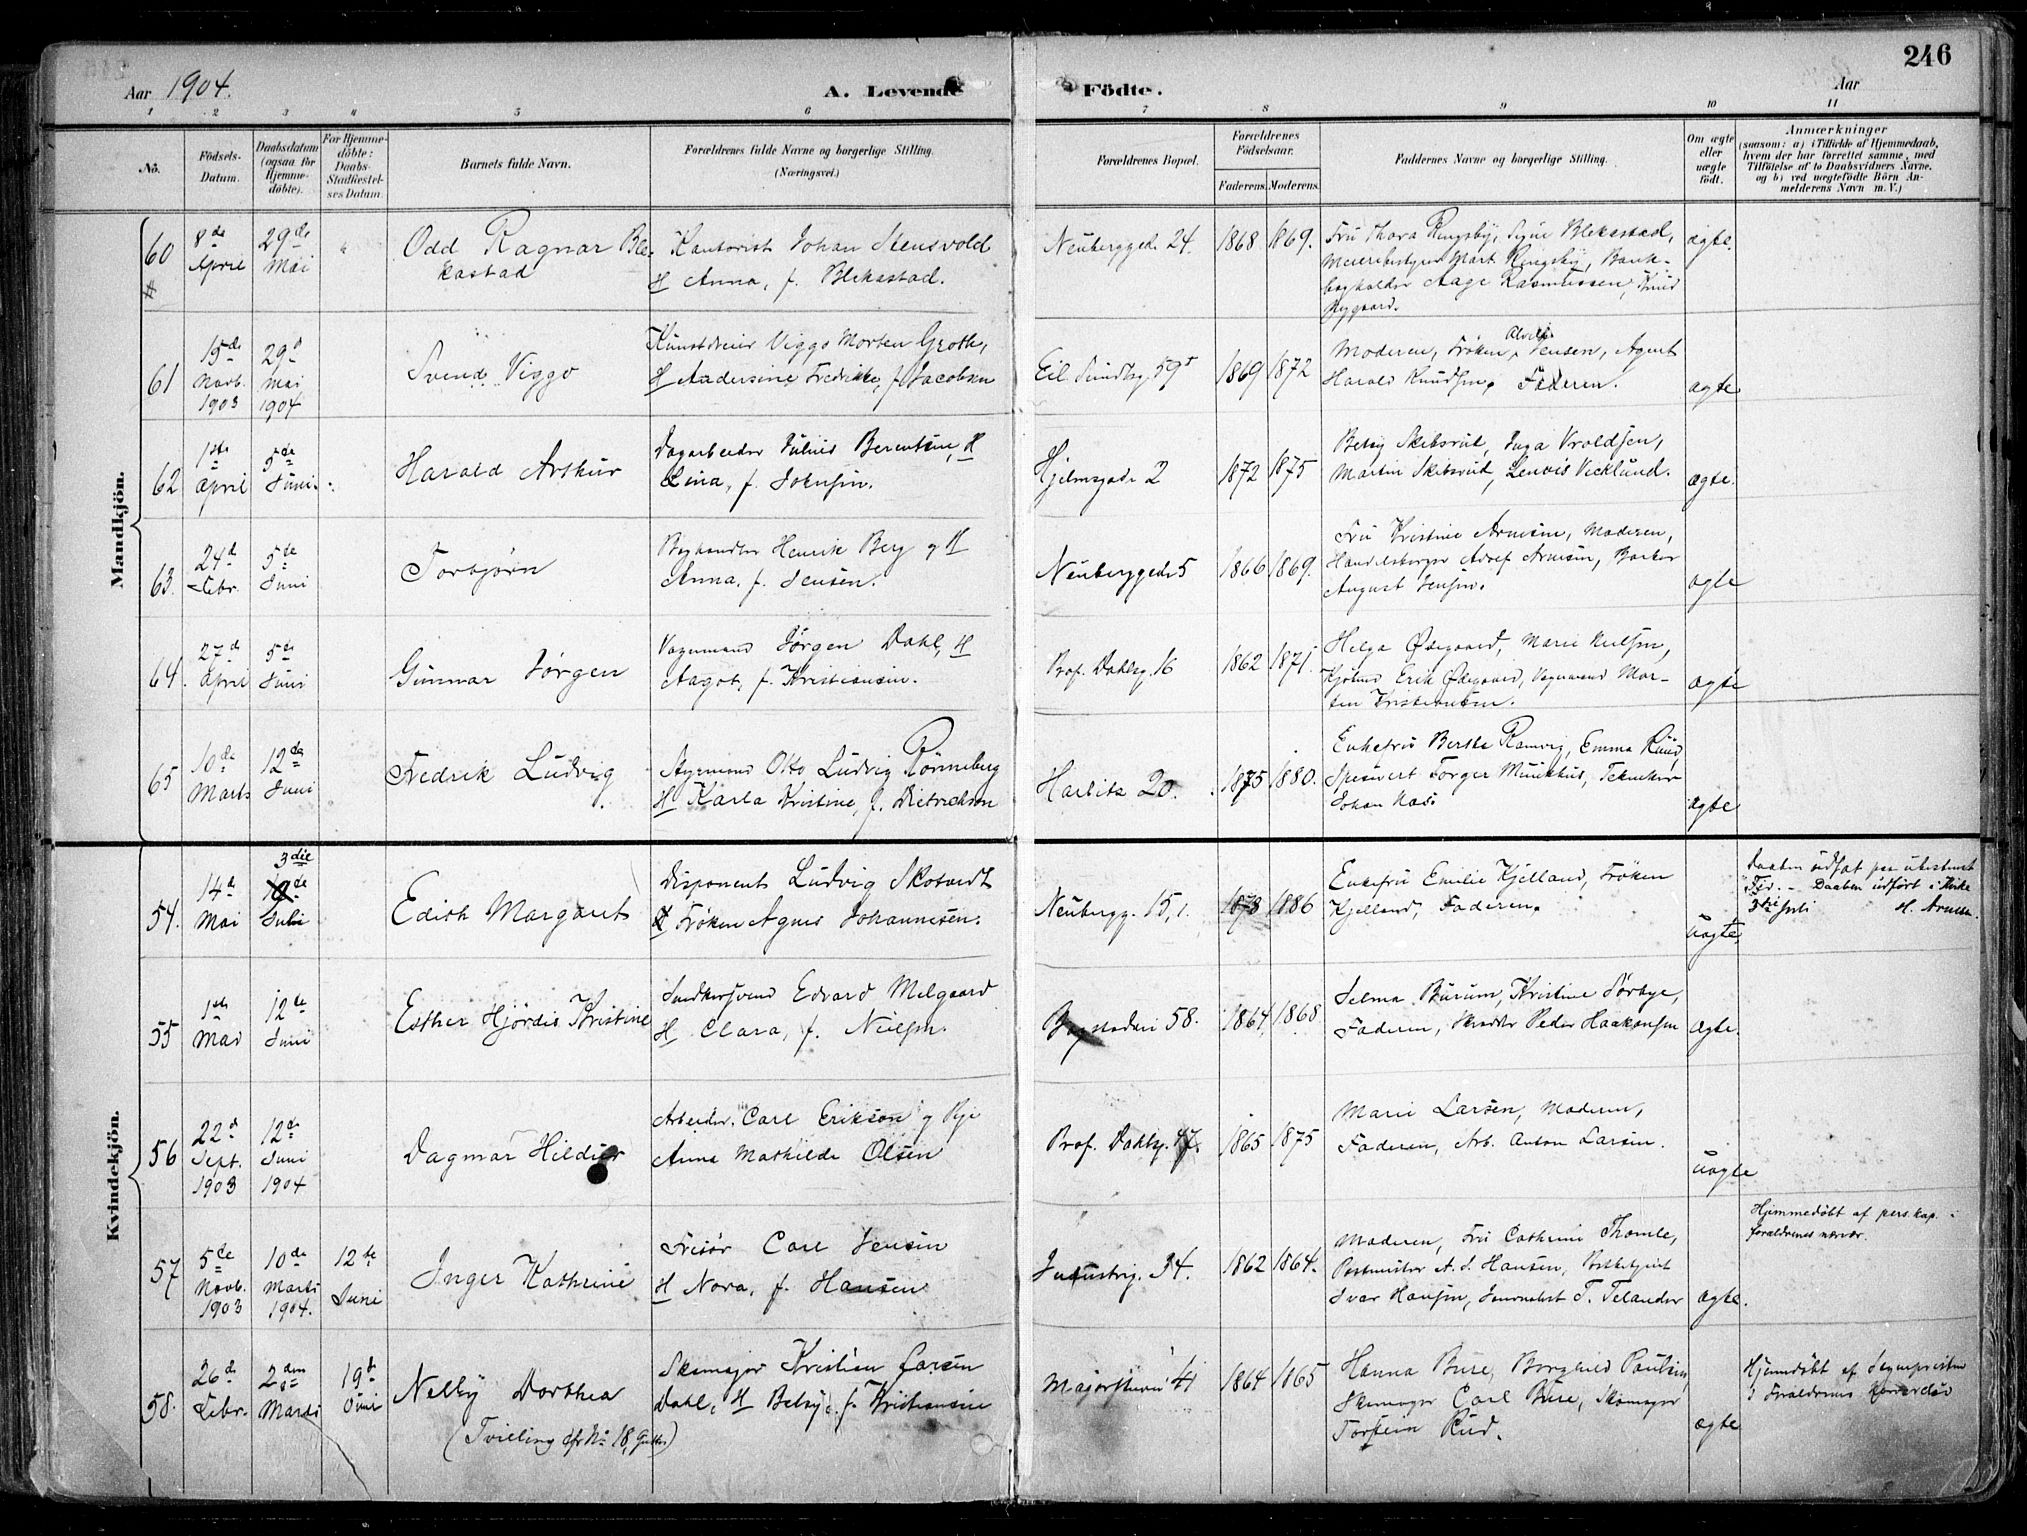 246
Aar 1904.
A. Levende Födte.
Aar
1 2 3 4 5 6 7 8 9 10 11
No.
Födsels-
Datum.
Daabsdatum
(ogsaa for
Hjemme-
døbte).
For Hjemme-
döbte:
Daabs-
Stadfæstel-
ses Datum.
Barnets fulde Navn.
Forældrenes fulde Navne og borgerlige Stilling.
(Næringsvei.)
Forældrenes Bopæl.
Forældrenes
Födselsaar.
Faderens. Moderens.
Faddernes Navne og borgerlige Stilling.
Om ægte
eller
uægte
födt.
Anmærkninger
(saasom: a) i Tilfælde af Hjemmedaab,
hvem der har forrettet samme, med
Tilföielse af to Daabsvidners Navne.
og b) ved uægtefödte Börn An-
melderens Navn m. V.)
Mandkjön.
60
8de
April
29de
Mai
Odd Ragnar Ble-
kastad
Kontorist Johan Stensvold
H Anna, f. Blekastad.
Neubergged. 24.
1868 1869.
Fru Thora Ringsby, Signe Blekastad,
Meieribestyrer Mart. Ringsby, Bank-
bogholder Aage Rasmussen, Knud
Nygaard.
ægte.
61
15de
Novb.
1903
29d
Mai
1904
Svend Viggo
Kunstdreier Viggo Morten Groth,
H Andersine Fredrikke, f. Jacobsen
Eil. Sundtsg. 59
1869 1872
Moderen, Frøken Jensen, Agent
Harald Knudsen, Faderen.
ægte
62
1ste
April
5de
Juni
Harald Arthur
Dagarbeider Julius Berentsen, H
Lina, f. Johnsen.
Hjelmsgade 2
1872 1875
Betsy Skibsrud, Inga Vroldsen,
Martin Skibsrud, Vicklund.
ægte.
63.
24d
Febr.
5te
Juni
Torbjørn
Boghandler Henrik Berg og H
Anna, f. Jensen.
Neubergged. 5
1866 1869.
Fru Kristine Arnesen, Moderen,
Handelsborger Adolf Arnesen,
August Jensen.
ægte
64.
27de
April
5te
Juni
Gunnar Jørgen
Vognmand Jørgen Dahl, H
Aagot, f. Kristiansen.
Prof. Dahlsg. 16
1862 1871.
Helga Ødegaard, Marie Nielsen,
Erik Ødegaard, Vognmand Mor-
ten Kristiansen.
ægte
65
10de
Marts
12de
Juni
Fredrik Ludvig
Otto Ludvig Rønneberg
H Karla Kristine, f. Dietrichson
Harbitz 20.
1875 1880.
Enkefru Berthe Ramvig, Emma Ruud,
Torger Munkhus, Tekniker
Johan Næs.
ægte
Kvindekjön.
54.
14d
Mai
3die
Juli
Edith Margaret
Disponent Ludvig Skotvedt
Frøken Agnes Johannesen.
Neubergg. 15, 1.
1873 1886
Enkefru Emilie Kjelland, Frøken
Kjelland, Faderen.
uægte.
Daaben udsat paa ubestemt
Tid. - Daaben udført i Kirke
3die Juli H.
55
1ste
Mai
12te
Juni
Esther Hjördis Kristine
Snedkersvend Edvard Melgaard
H Clara, f. Nielsen.
Bogstadvei 58.
1864 1868
Selma Burum, Kristine Sørbye,
Faderen, Skrædder Peder Haakonsen
ægte.
56
22d
Sept.
1903
12te
Juni
1904
Dagmar
Arbeider Carl Erikson og Pige
Anna Mathilde Olsen
Prof. Dahlsg. 47.
1865 1875
Marie Larsen, Moderen,
Faderen, Arb. Anton Larsen.
uægte
57
5te
Novb.
1903
10de
Marts
1904.
12te
Juni
Inger Kathrine
Frisør Carl Jensen
H Nora, f. Hansen
Industrig. 34.
1862 1864.
Moderen, Fru Cathrine Thomle,
Postmester A. S. Hansen,
Ivar Hansen, Journalist T. Telander
ægte.
Hjemmedøbt af pers. kap. i
forældrenes nærvær.
58.
26de
Febr.
2den
Marts
19d
Juni
Nelly Dorthea
(Tvilling cfr No 18, Gutter)
Skomager Kristian Larsen
Dahl, H Betsy, f. Kristiansen
Majorstuvei 41
1864 1865
Hanna Bure, Borghild Paulsen,
Skomager Carl Bure, Skomager
Torstein Rud.
ægte
Hjemmdøbt af Sognepresten
i Forældrenes